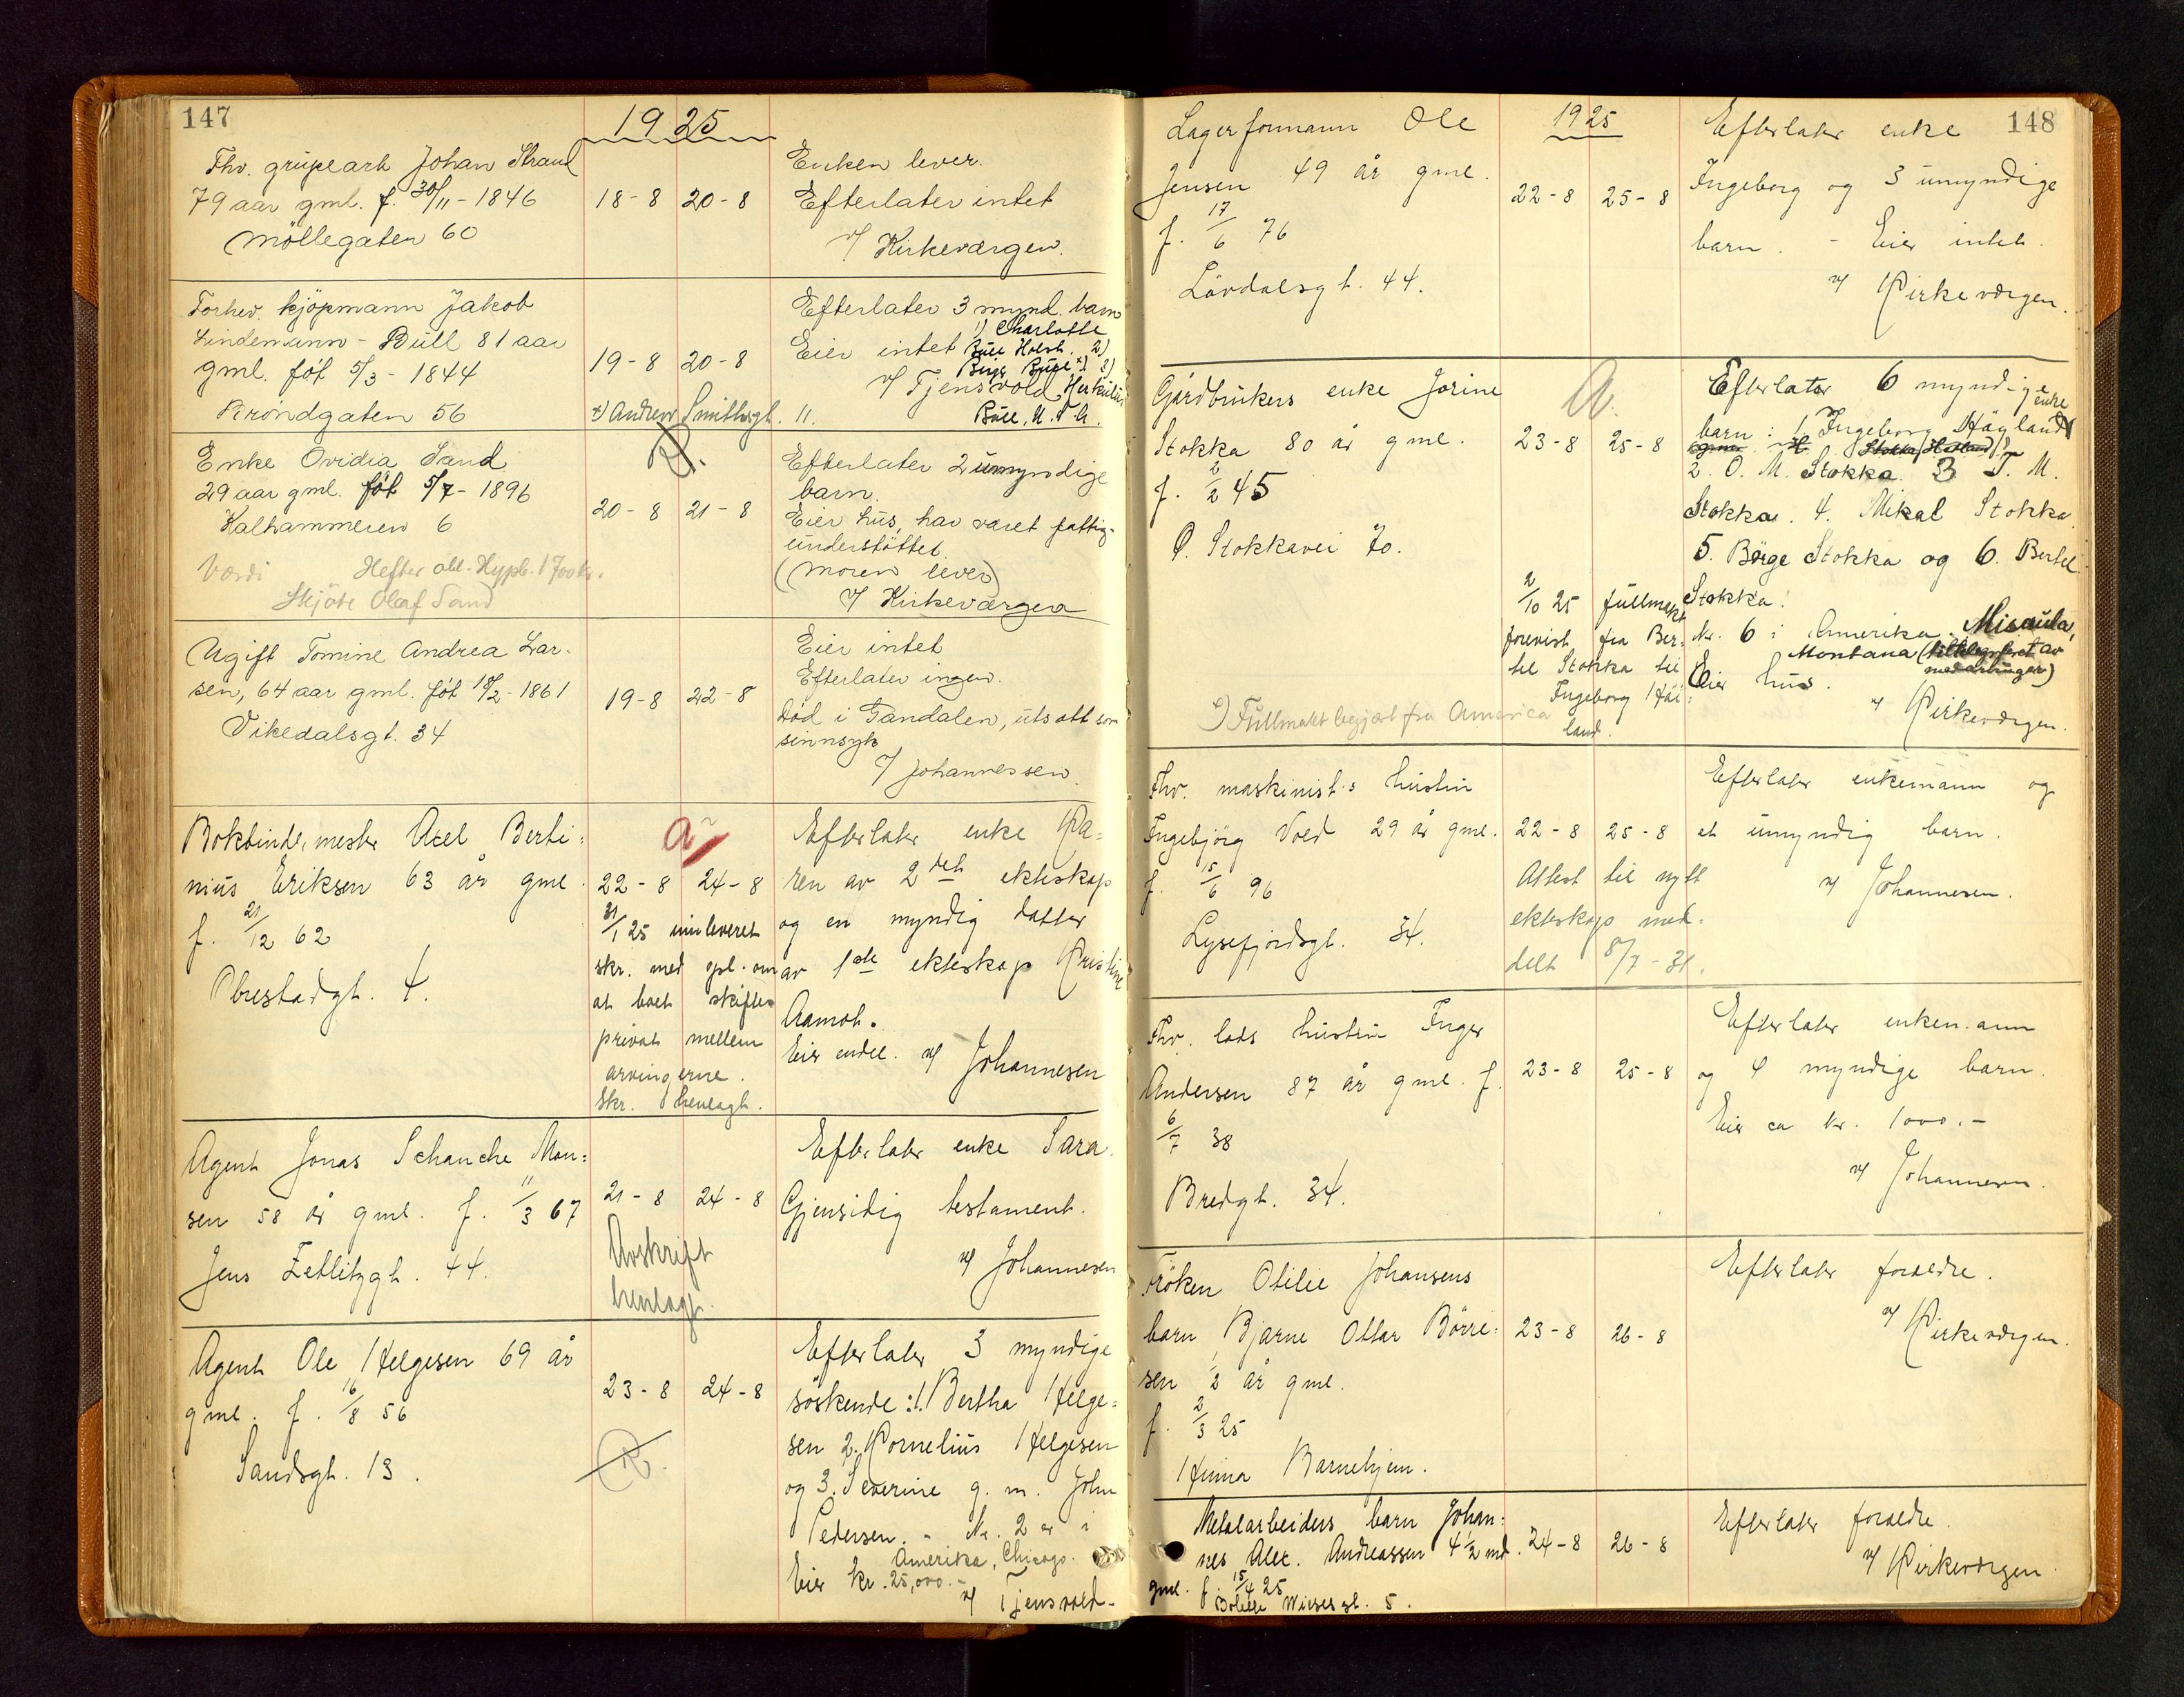 147
1925
Thv. grubearb Johan Strand
79 aar gml. f. 30/11 - 1846
Möllegaten 60
18-8 20-8
Enken lever.
Efterlater intet
v/ Kirkevergen.
Forhev. kjöpmann Jakob
Lindemann - Bull 81 aar
gml. föt 5/3 - 1844
Bröndgaten 56
19-8 20-8
x) Andrew Smithsgt. 11.
Efterlater 3 mynd. barn
1) Charlotte
Eier intet Bull Holst. 2)
Birger Bull x) 3)
v/ Tjensvold Herkulus
Bull, U.S.A.
Enke Ovidia Sand
29 aar gml. föt 5/7 - 1896
Kalhammeren 6
Verdi Hefter obl. Hypb. 1700 kr.
Skjöte Olaf Sand
20-8 21-8
Efterlater 2 umyndige
barn.
Eier hus, har været fattig-
understöttet.
(Moren lever)
v/ Kirkevergen
Ugift Tomine Andrea Lar-
sen, 64 aar gml. föt 18/2 - 1861
Vikedalsgt. 34
19-8 22-8
Eier intet
Efterlater ingen.
död i Sandalen, utsatt som
sinnsyk
v/ Johannessen.
Bokbindermester Axel Berti=
nius Eriksen 63 år gml.
f. 21/12 62
Obrestadgt. 4.
a
22-8 24-8
31/1 25 innleveret
skr. med opl. om
at boet skiftes
privat mellem
arvingerne.
Skr. henlagt.
Efterlater enke Ka=
ren av 2det ekteskap
og en myndig datter
av 1ste ekteskap Kristine
Aamot.
Eier endel. v/ Johannesen
Agent Jonas Schanche Mon=
sen 58 år gml. f. 11/3 67
Jens Zetlitzgt. 44.
21-8 24-8
Avskrift
henlagt.
Efterlater enke Sara.
Gjensidig testament.
v/ Johannesen
Agent Ole Helgesen 69 år
gml. f. 16/8 56
Sandsgt. 13.
23-8 24-8
R.
Efterlater 3 myndige
söskende: 1. Bertha Helge=
sen 2. Kornelius Helgesen
og 3. Severine g. m. John
Pedersen. - Nr. 2 er i
Amerika, Chicago.
Eier kr. 25,000.-
v/ Tjensvold-
148
1925
Lagerformann Ole
Jensen 49 år gml.
f. 17/6 76
Lövdalsgt. 44.
22-8 25-8
Efterlater enke
Ingeborg og 3 umyndige
barn. - Eier intet.
v/ Kirkevergen.
Gårdbrukers enke Jorine
Stokka 80 år gml.
f. 2/2 45
Ö. Stokkavei 70.
a.
23-8 25-8
2/10 25 fullmakt
forevist fra Ber=
tel Stokka til
Ingeborg Höi=
land.
Fullmakt begjært fra America
Efterlater 6 myndige
enke
barn: 1. Ingeborg Högland
2. O. M. Stokka 3 T. M.
Stokka. 4. Mikal Stokka
5. Börge Stokka og 6. Bertel
Stokka.
Nr. 6 i Amerika. Misaula,
Montana (tiltelegrferet av
medarvinger)
Eier hus.
v/ Kirkevergen.
Thv. maskinist's hustru
Ingebjörg Vold 29 år gml.
f. 15/6 96
Lysefjordsgt. 34.
22-8 25-8
Attest til nytt
ekteskap med=
delt 8/7 - 31.
Efterlater enkemann og
et umyndig barn.
v/ Johannesen.
Thv. lods hustru Inger
Andersen 87 år gml. f.
6/7 38
Bredgt. 34.
23-8 25-8
Efterlater enkemann
og 4 myndige barn.
Eier ca kr. 1000.-
v/ Johannesen.
Fröken Otilie Johansens
barn, Bjarne Ottar Börre=
sen 1/2 år gml.
f. 2/3 25
Hinna Barnehjem.
23-8 26-8
Efterlater foreldre.
v/ Kirkevergen.
Metalarbeiders barn Johan=
nes Alex. Andreassen 4 1/2 md.
gml. f. 15/4 25
Wiesesgt. 5.
24-8 26-8
Efterlater foreldre.
v/ Kirkevergen.